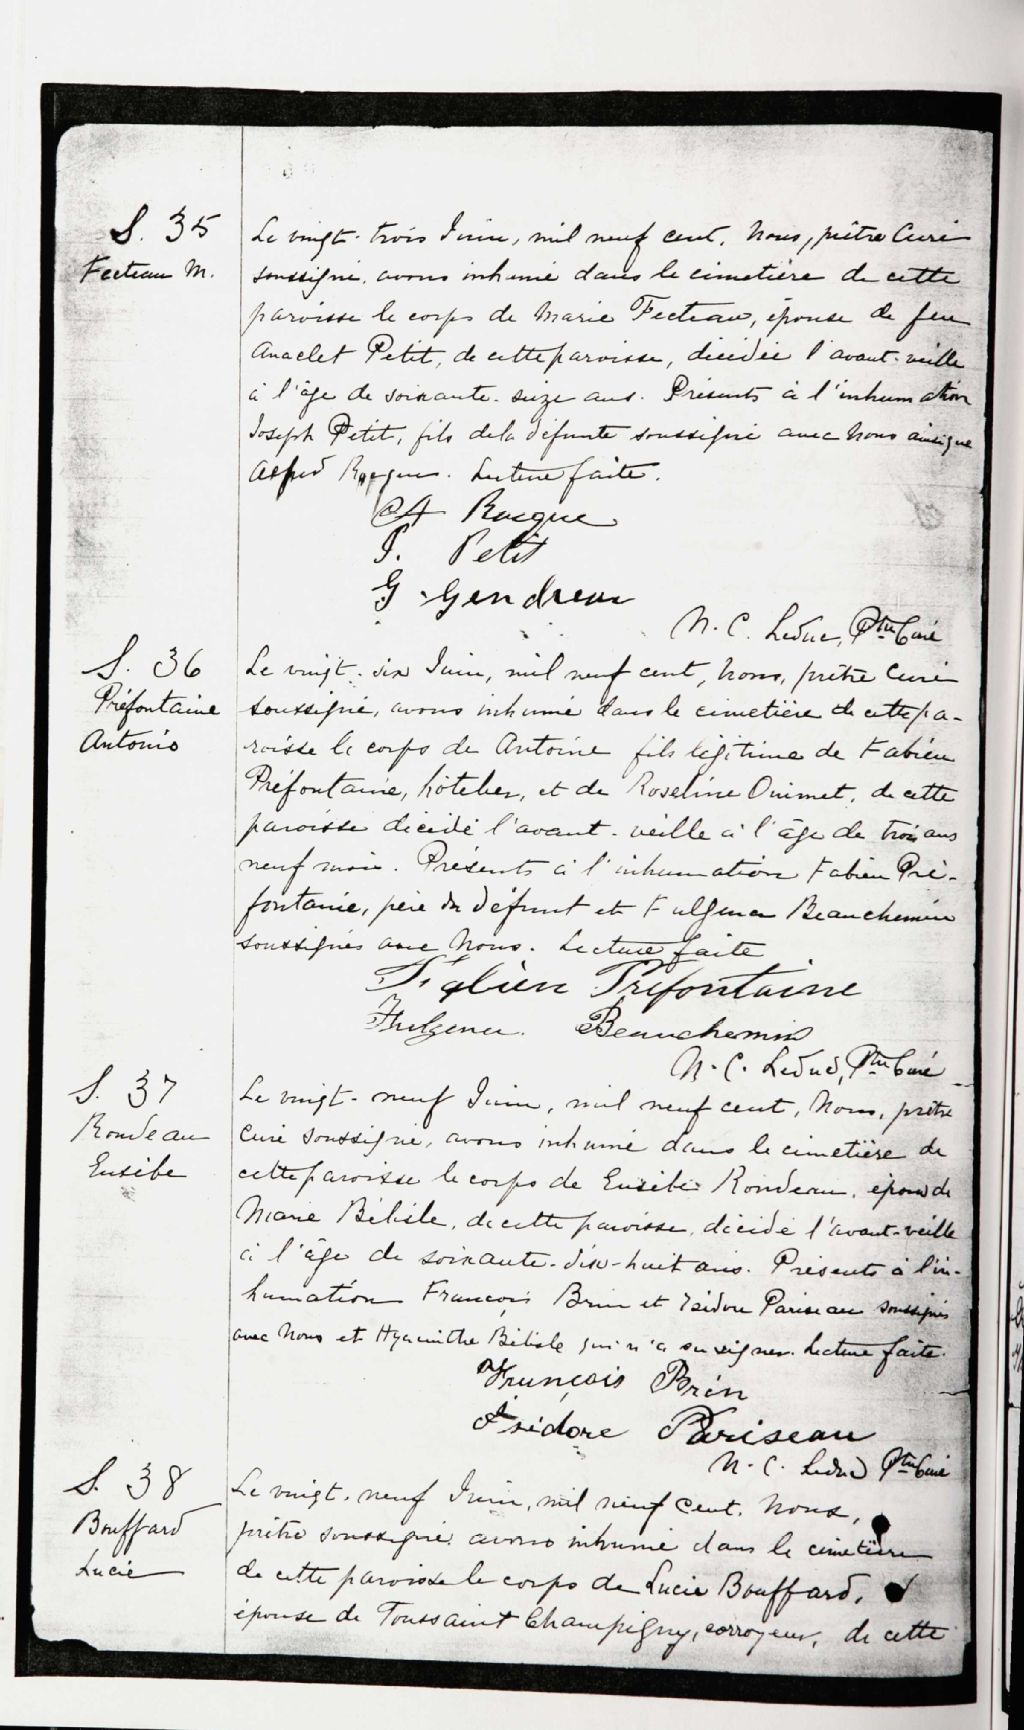 S. 35
Fecteau M.
Le vingt-trois Juin, mil neuf cent, Nous, prêtre Curé
soussigné, avons inhumé dans le cimetière de cette
paroisse le corps de Marie Fecteau, épouse de feu
Anaclet Petit, de cette paroisse, décédée l'avant-veille
à l'âge de soixante-seize ans. Présents à l'inhumation
Joseph Petit, fils de la défunte soussigné avec Nous ainsi que
Alfred Rocque. Lecture faite.
A Rocque
J. Petit
G. Gendreau
N. C. Leduc, Ptre Curé
S. 36
Préfontaine
Antonio
Le vingt-six Juin, mil neuf cent, Nous, prêtre Curé
soussigné, avons inhumé dans le cimetière de cette pa-
roisse le corps de Antoine fils légitime de Fabien
Préfontaine, hôtelier, et de Roseline Ouimet, de cette
paroisse décédé l'avant-veille à l'âge de trois ans
neuf mois. Présents à l'inhumation Fabien Pré-
fontaine, père du défunt et Fulgence Beauchemin
soussignés avec Nous. Lecture faite
Fabien Préfontaine
Fulgence Beauchemin
N. C. Leduc, Ptre Curé
S. 37
Rondeau
Eusèbe
Le vingt-neuf Juin, mil neuf cent, Nous, prêtre
curé soussigné, avons inhumé dans le cimetière de
cette paroisse le corps de Eusèbe Rondeau, époux de
Marie Bélisle, de cette paroisse, décédé l'avant-veille
à l'âge de soixante-dix-huit ans. Présents à l'in-
humation François Brin et Isidore Pariseau soussignés
avec Nous et Hyacinthe Bélisle qui n'a su signer. Lecture faite.
François Brin
Isidore Pariseau
N. C. Leduc Ptre Curé
S. 38
Bouffard
Lucie
Le vingt-neuf Juin, mil neuf cent, Nous,
prêtre soussigné avons inhumé dans le cimetière
de cette paroisse le corps de Lucie Bouffard,
épouse de Toussaint Champigny, corroyeur, de cette